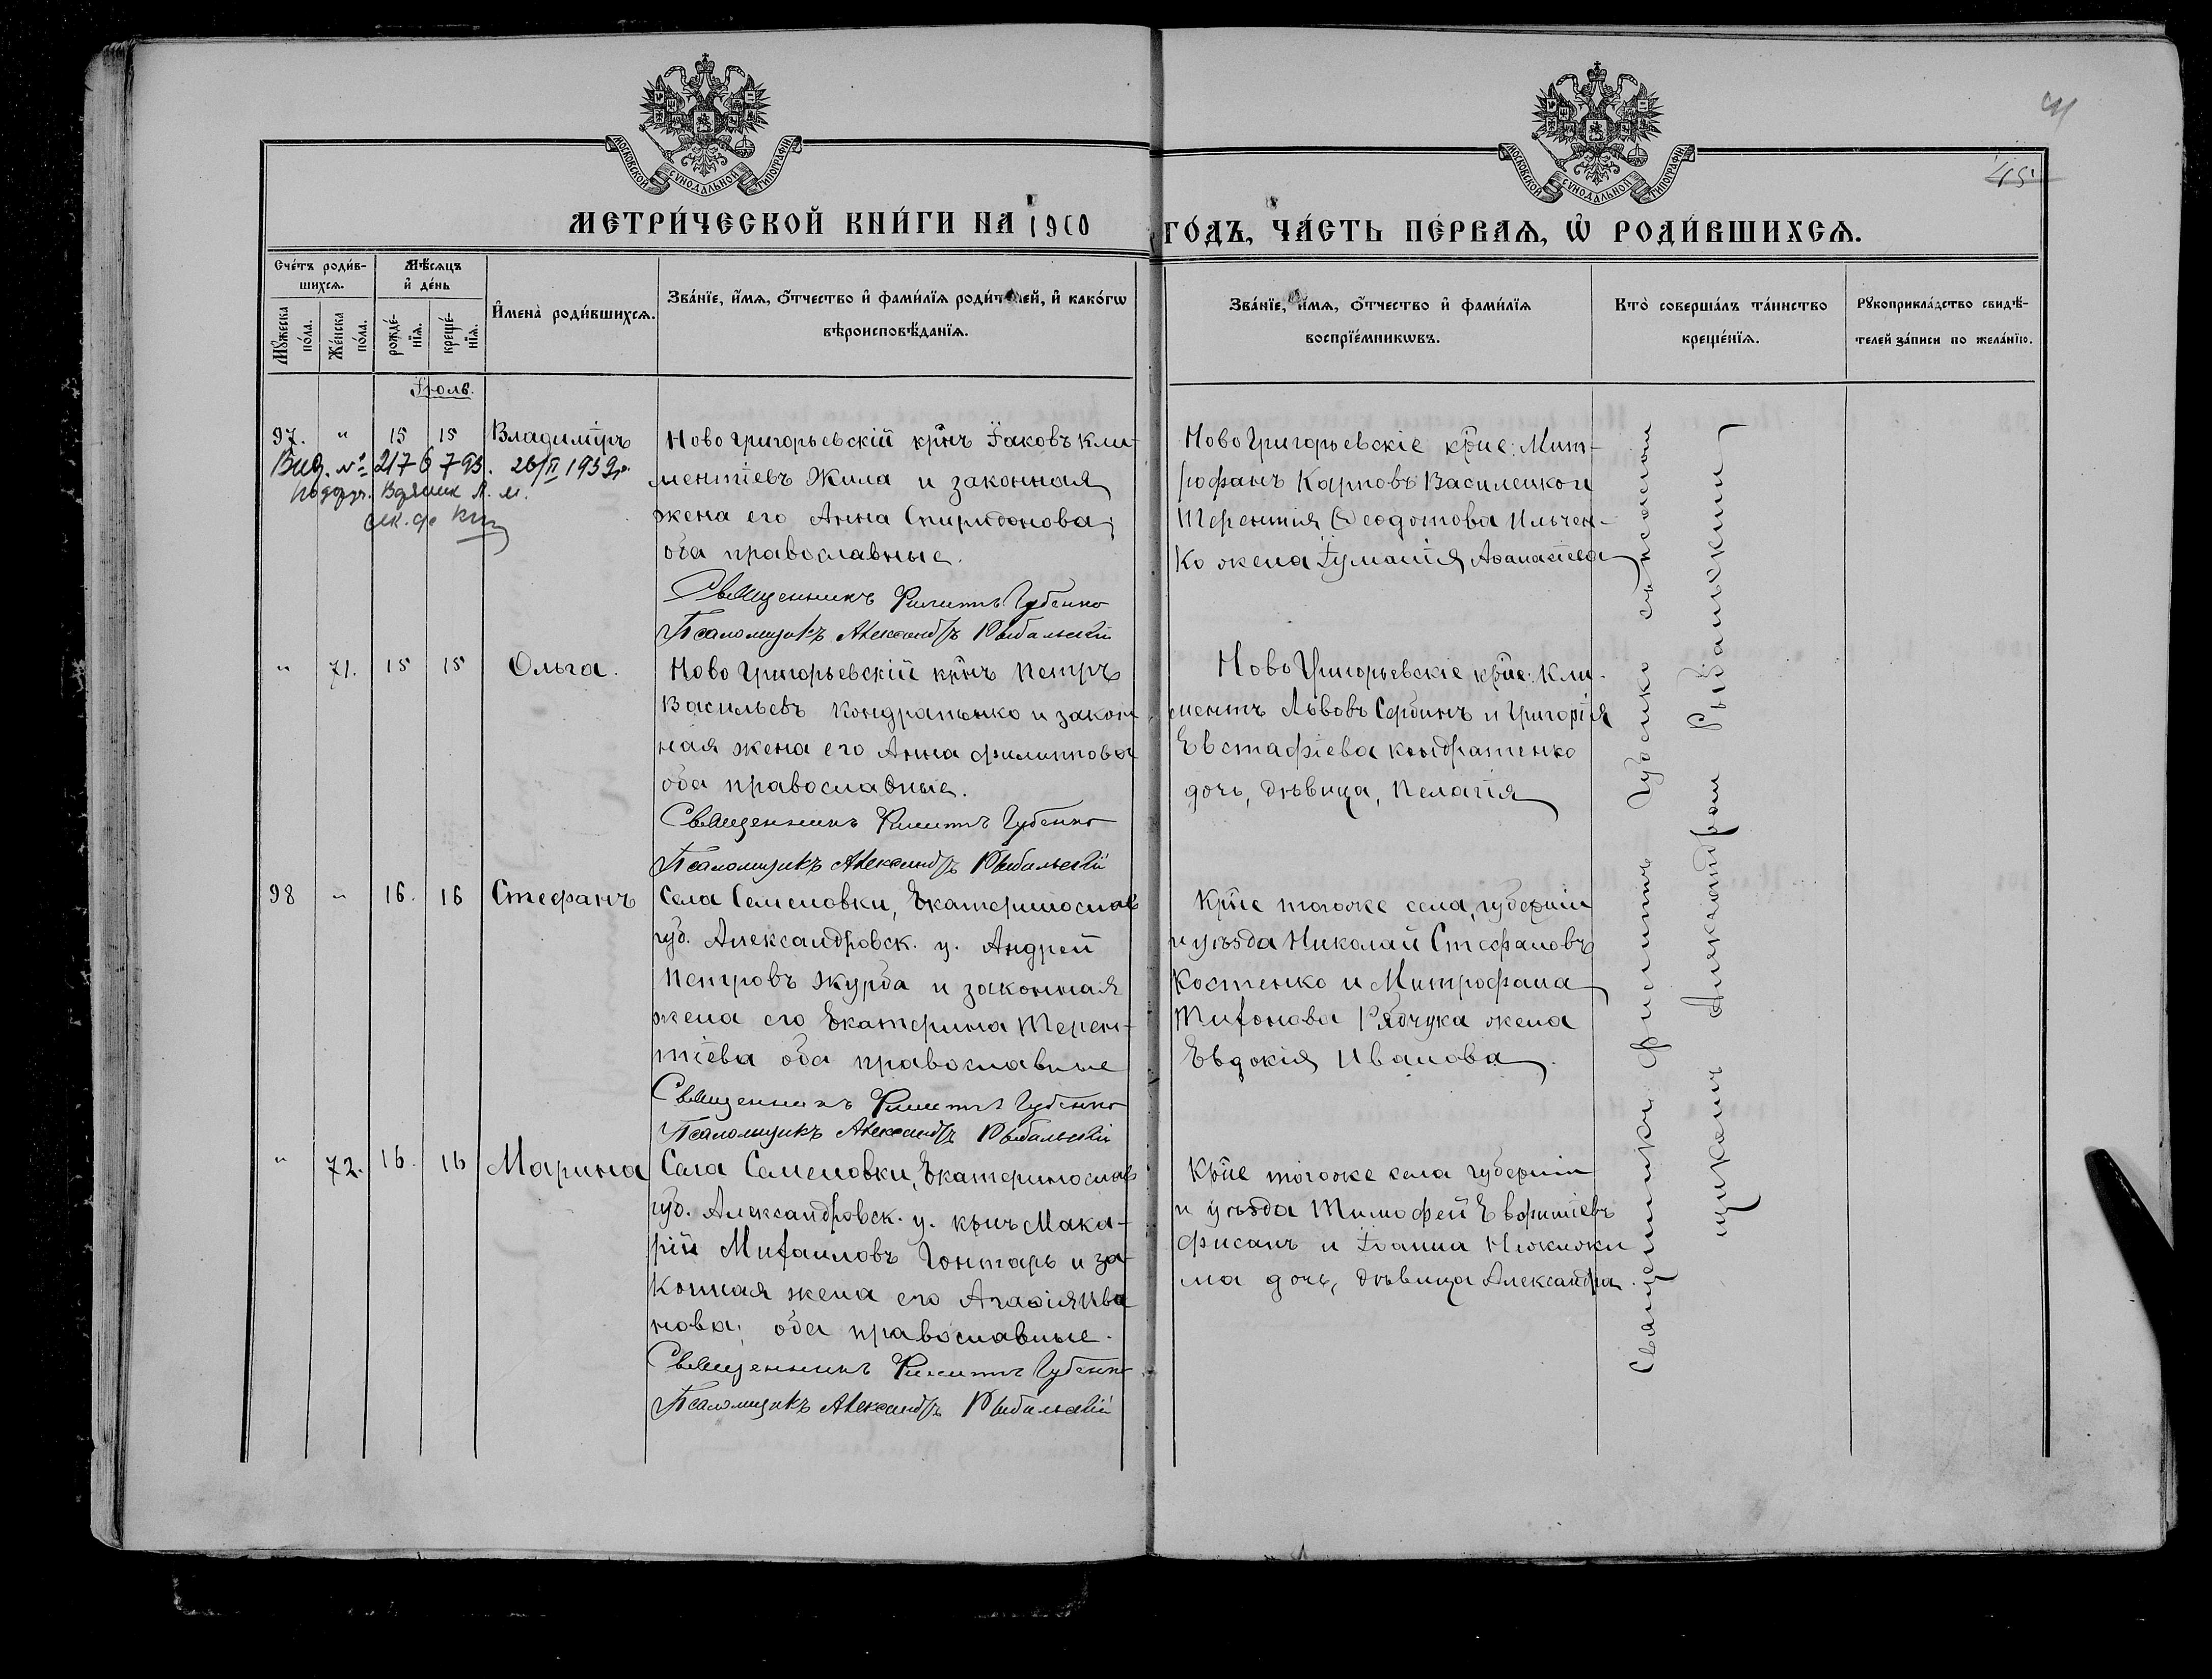 МОСКОВСКОЙ СѴНОДАЛЬНОЙ ТИПОГРАФІИ
МОСКОВСКОЙ СѴНОДАЛЬНОЙ ТИПОГРАФІИ
45
МЕТРИ́ЧЕСКОЙ КНИ́ГИ НА 1910 ГО́ДЪ, ЧА́СТЬ ПЕ́РВАѦ, Ѡ҆ РОДИ́ВШИХСѦ.
Сче́тъ роди́в-
шихсѧ.
Мꙋ́жеска по́ла.
Же́нска по́ла.
Мѣ́сѧцъ
и҆ де́нь
рожде́-
нїѧ.
креще́-
нїѧ.
И҆мена̀ роди́вшихсѧ.
Зва́нїе, и҆́мѧ, ѻ҆́тчество и҆ фами́лїѧ роди́телей, и҆ како́гѡ
вѣроисповѣ́данїѧ.
Зва́нїе, и҆́мѧ, ѻ҆́тчество и҆ фами́лїѧ
воспрїе́мникѡвъ.
Кто̀ соверша́лъ та́инство
креще́нїѧ.
Рꙋкоприкла́дство свидѣ́-
телей за́писи по жела́нїю.
Іюль.
97. " 15 15 Владиміръ
Вид. № 2176793. 26/II 1939 р.
Ново Григорьевскій кр͠нъ Іаковъ Кли-
ментіевъ Жила и законная
жена его Анна Спиридонова;
оба православные.
Священникъ Филиппъ Губенко
Псаломщикъ Александръ Рыбальскій
Ново Григорьевскіе кр͠не: Мит-
рофанъ Карповъ Василецкой
Терентия Ѳеодотова Ильчен-
ко жена Іуманія Аѳанасіева
" 71. 15 15 Ольга.
Ново Григорьевскій кр͠нъ Петръ
Васильевъ Кондратенко и закон-
ная жена его Анна Филиппова
оба православные.
Священникъ Филиппъ Губенко
Псаломщикъ Александръ Рыбальскій
Ново Григорьевскіе кр͠не: Кли-
ментъ Львовъ Сербинъ и Григорія
Евстафіева Кондратенко
дочь, дѣвица, Пелагія
98 " 16. 16 Стефанъ
Села Семеновки, Екатеринослав
губ. Александровск. у. Андрей
Петровъ Журба и законная
жена его Екатерина Терен-
тіева оба православные
Священникъ Филиппъ Губенко
Псаломщикъ Александръ Рыбальскій
Кр͠не тогоже села, губерніи
и уѣзда Николай Стефановъ
Костенко и Митрофана
Тихонова Рябчука жена
Евдокія Иванова.
" 72. 16. 16 Марина
Села Семеновки, Екатеринослав
губ. Александровск. у. кр͠нъ Мака-
рій Михаиловъ Гонтарь и за-
конная жена его Агаѳія Ива
нова; оба православные.
Священникъ Филиппъ Губенко
Псаломщикъ Александръ Рыбальскій
Кр͠не тогоже села губерніи
и уѣзда Тимофей
Фисанъ и Іоанна
ма дочь, дѣвица Александра.
Священникъ Филиппъ Губенко съ псалом
щикомъ Александром Рыбальским